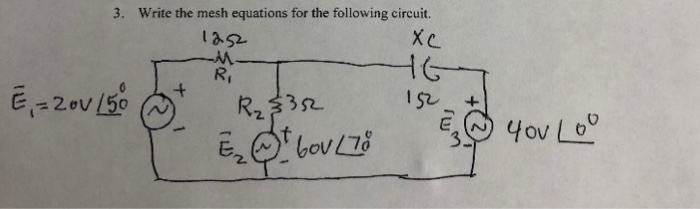 3. Write the mesh equations for the following circuit.
12Ω
R₁
XC
1Ω
Ē₁ = 20V ∠50°
+
-
R₂ 3Ω
Ē₂
+
-
60V ∠70°
Ē₃
+
-
40V ∠0°